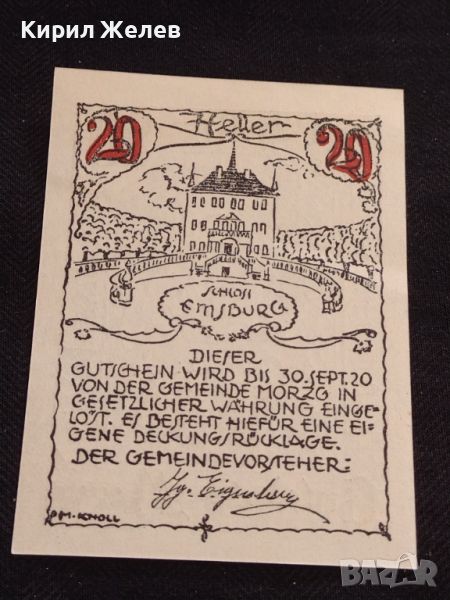 Кирил Желев
20 Heller 20
SCHLOSS
EMSBURG
DIESER
GUTSCHEIN WIRD BIS 30.SEPT.20
VON DER GEMEINDE MORZG IN
GESETZLICHER WÄHRUNG EINGE-
LÖST. ES BESTEHT HIEFÜR EINE EI-
GENE DECKUNGSRÜCKLAGE.
DER GEMEINDEVORSTEHER:
PM·KNOLL
BAZAR